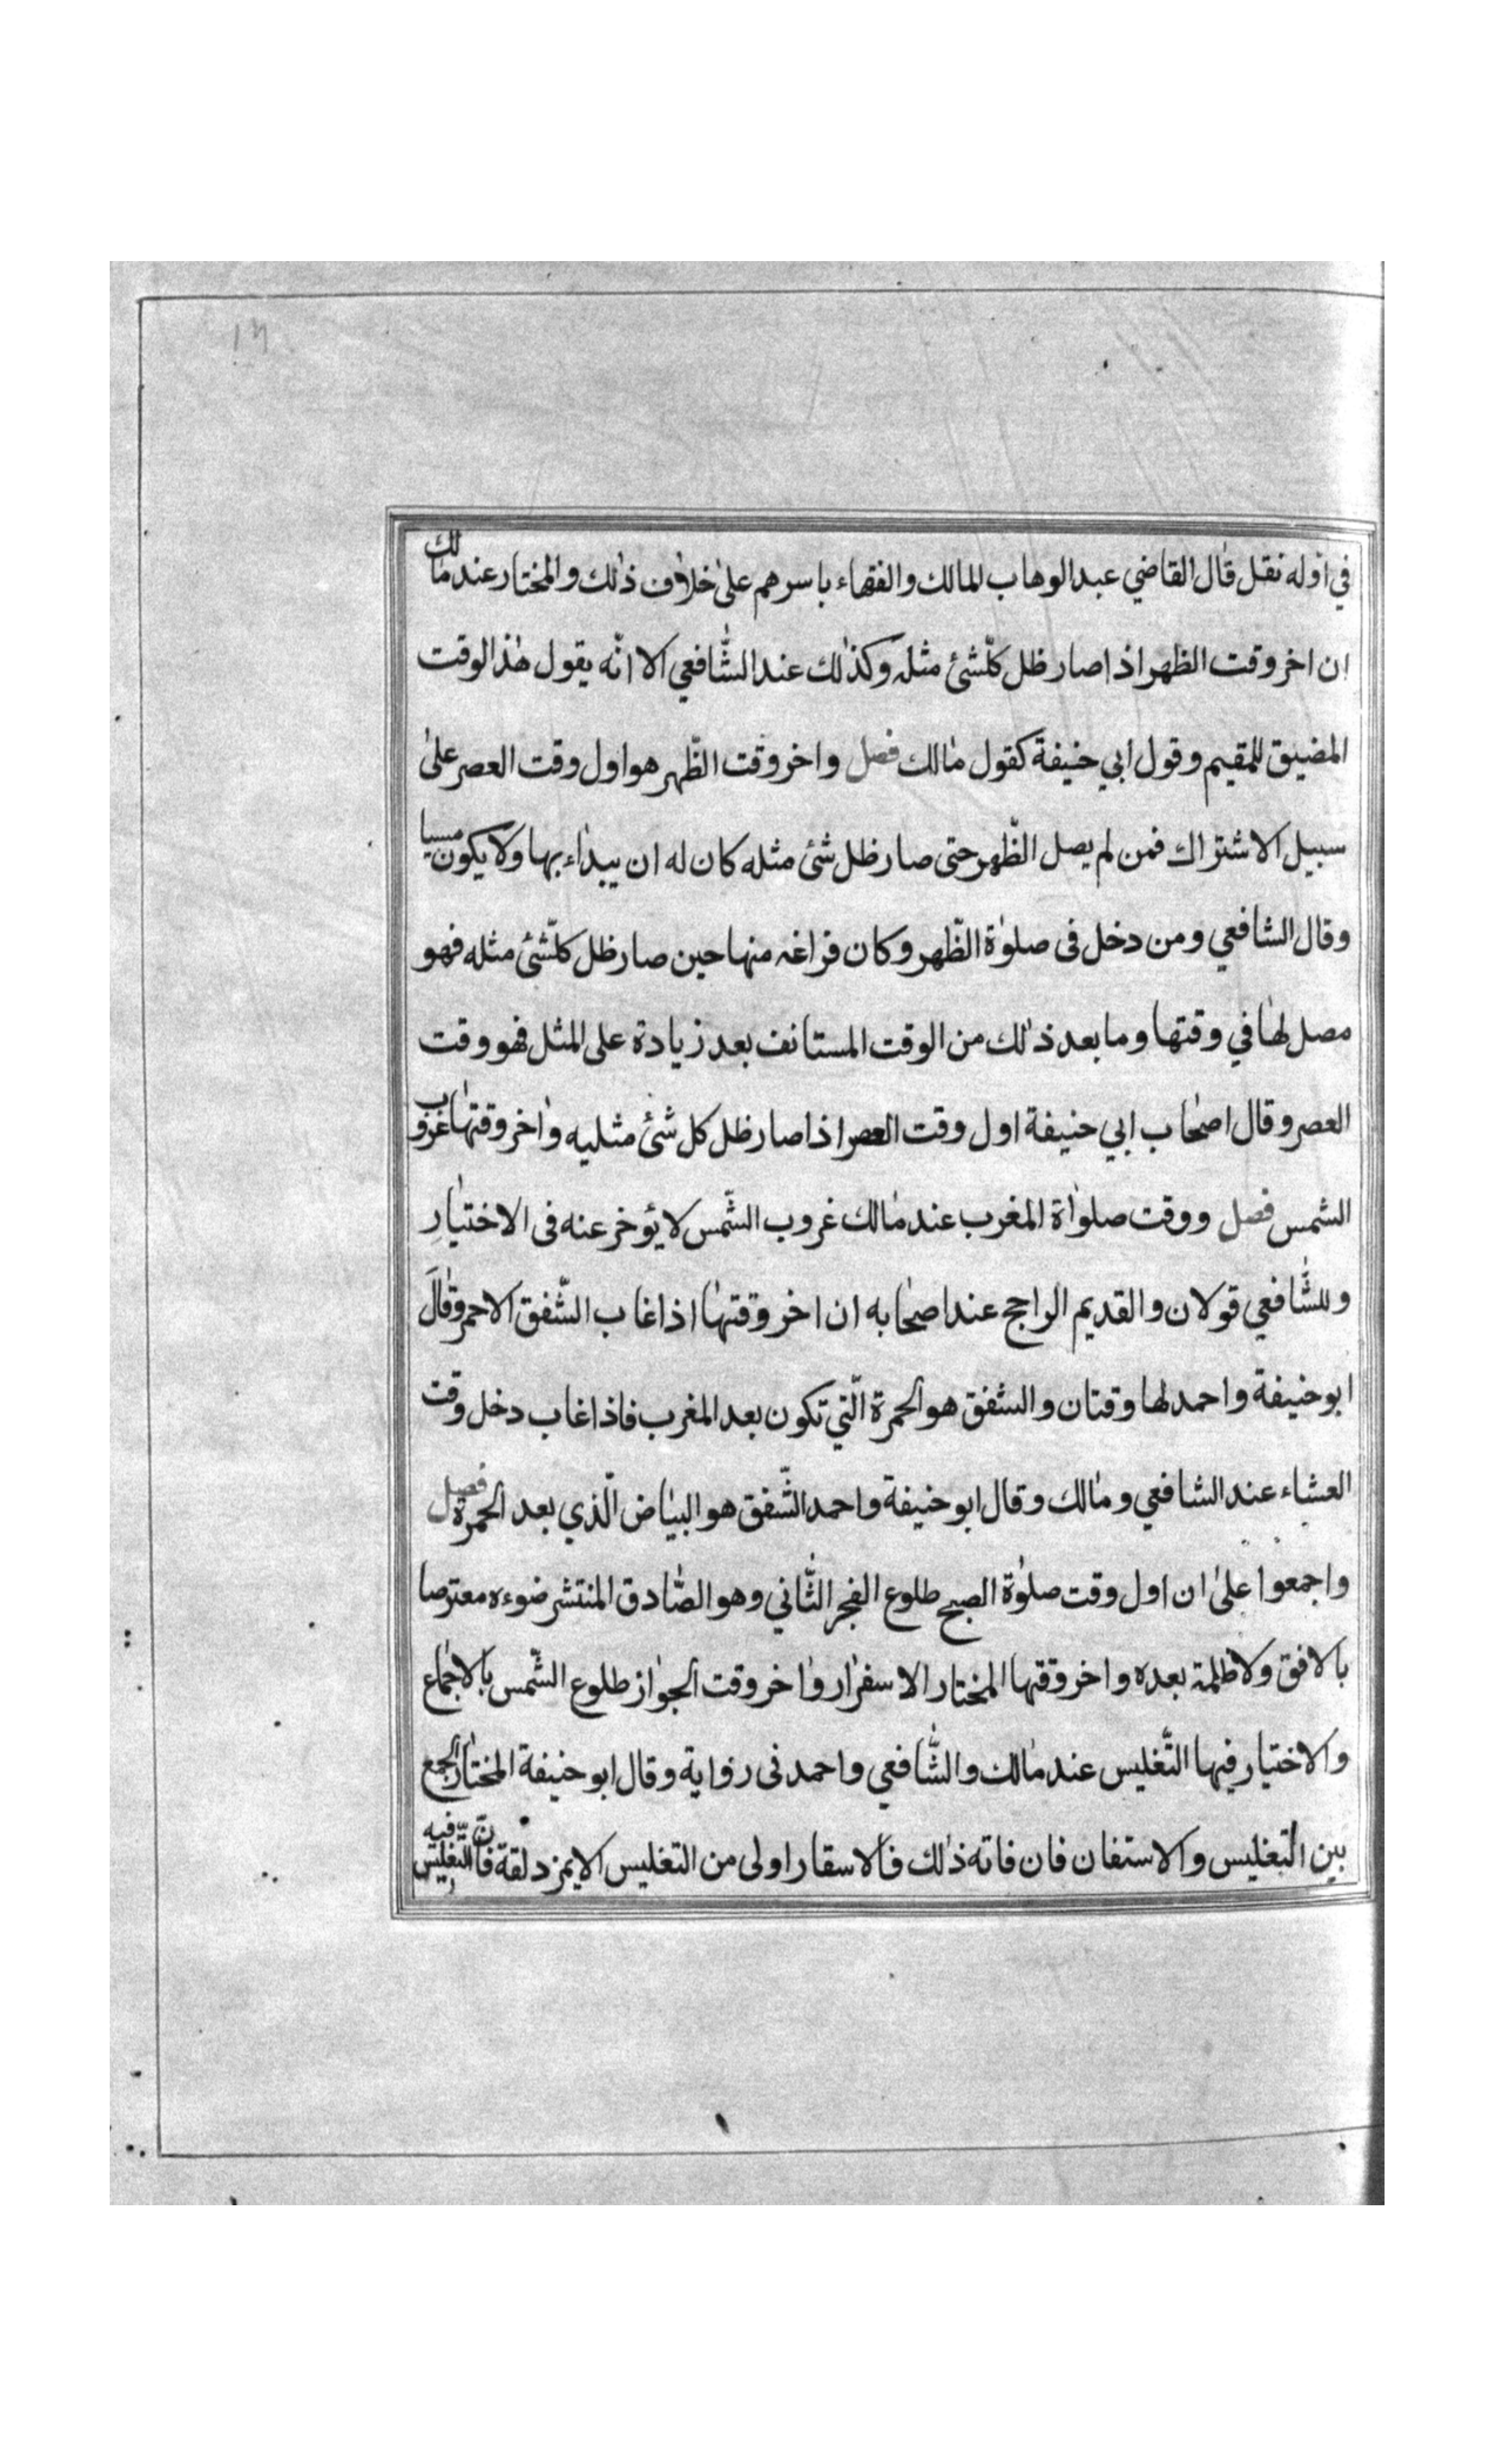 ١٣
في اوله نقل قال القاضي عبد الوهاب المالك والفقهاء باسرهم علىٰ خلاف ذٰلك والمختار عند مٰالك
ان اخر وقت الظهر اذ اصار ظل كلّشئ مثله وكذٰلك عند الشّافعي الا انّه يقول هٰذ الوقت
المضيق للمقيم وقول ابي حنيفة كقول مٰالك فصل واخر وقت الظّهر هو اول وقت العصر علىٰ
سبيل الاشتراك فمن لم يصل الظّهر حتى صار ظل شئ مثله كان له ان يبداء بها ولا يكون مسيا
وقال الشافعي ومن دخل فى صلوٰة الظّهر وكان فراغه منها حين صار ظل كلّشئ مثله فهو
مصل لهٰا في وقتها وما بعد ذٰلك من الوقت المستانف بعد زيادة على المثل فهو وقت
العصر وقال اصحٰاب ابي حنيفة اول وقت العصر اذا صار ظل كل شئ مثليه وٰاخر وقتهٰا غروب
الشمس فصل ووقت صلوٰاة المغرب عند مٰالك غروب الشّمس لا يؤخر عنه فى الاختيٰار
وللشّافعي قولان والقديم الراجح عند اصحٰابه ان اخر وقتهٰا اذا غاب الشّفق الاحمر وقٰالَ
ابو حنيفة واحمد لها وقتان والشفق هو الحمرة الّتي تكون بعد المغرب فاذا غاب دخل وقت
العشاء عند الشافعي ومٰالك وقال ابو حنيفة واحمد الشّفق هو البيٰاض الّذي بعد الحمرة فصل
واجمعوا علىٰ ان اول وقت صلوٰة الصبح طلوع الفجر الثّاني وهو الصّادق المنتشر ضوءه معترصا
بالافق ولا ظلمة بعده واخر وقتها المختار الاسفرٰار وٰاخر وقت الجوٰاز طلوع الشّمس بالاجمٰاع
والاختيار فيها التّغليس عند مٰالك والشّافعي واحمد فى روٰاية وقال ابو حنيفة المختار الجمع
بين التّغليس والاستفان فان فاته ذٰلك فالاسقار اولى من التغليس الا بمزدلقة فانّ التّغليس فيه